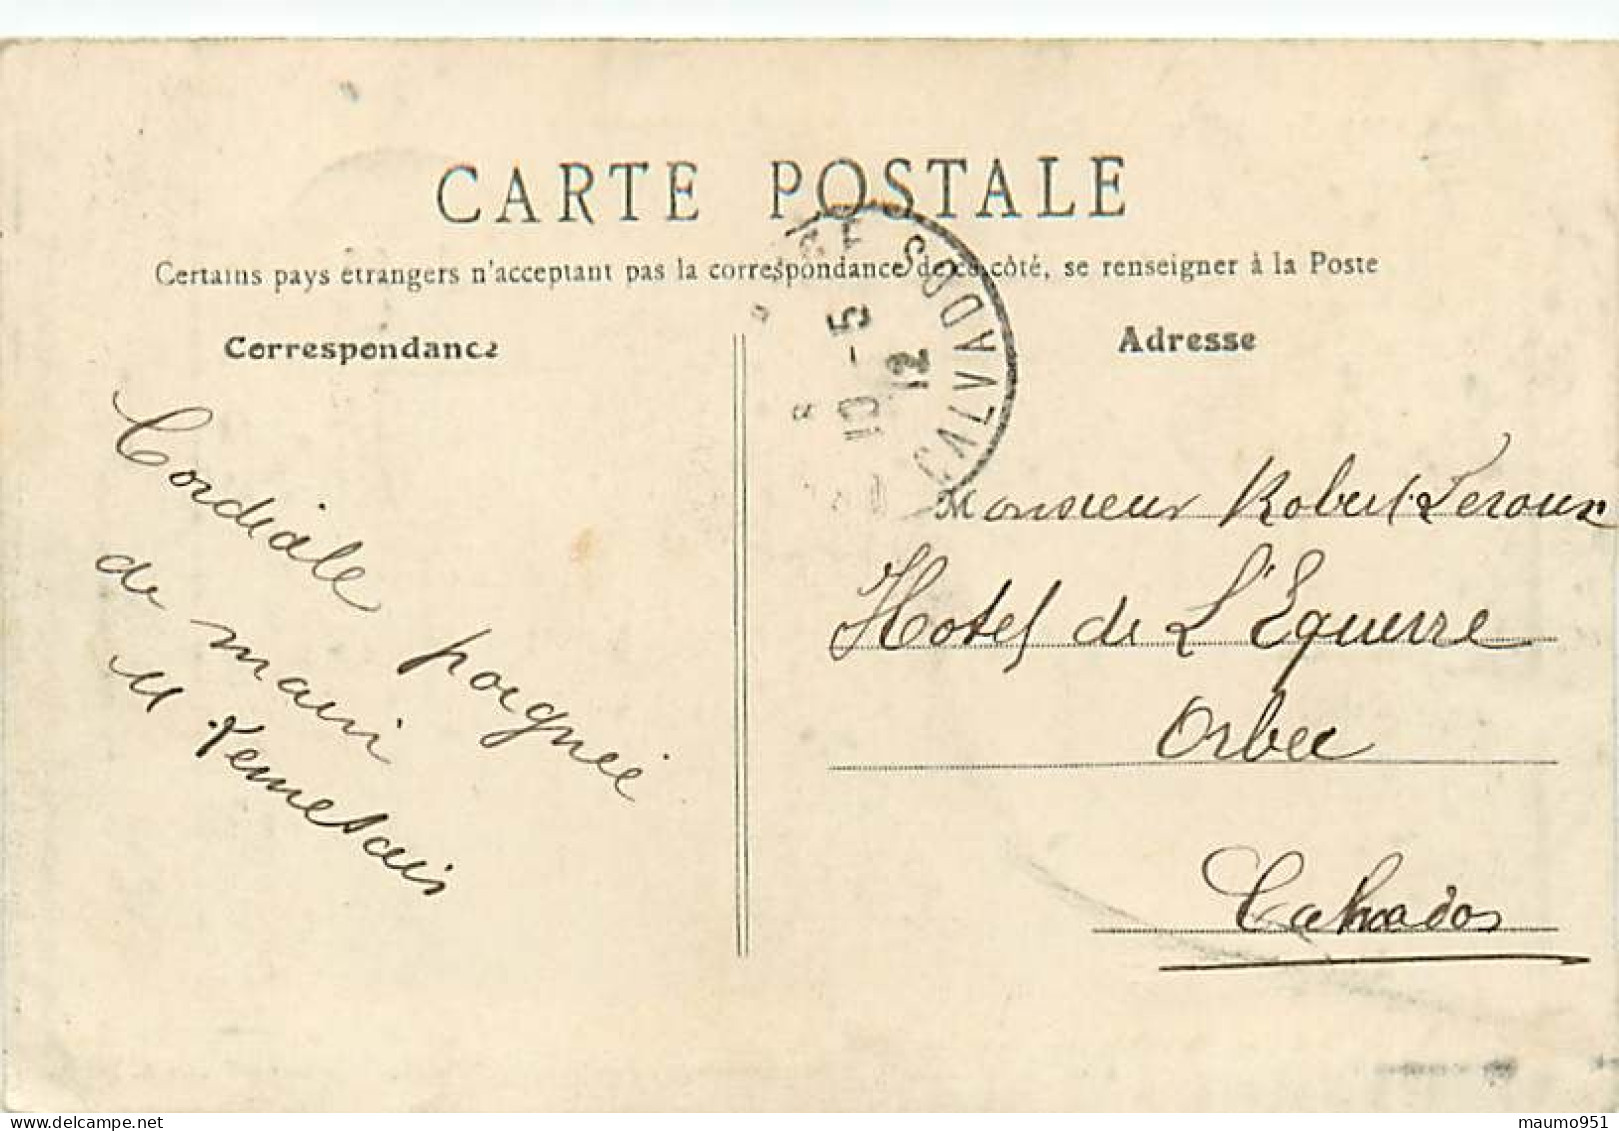 CARTE POSTALE
Certains pays étrangers n'acceptent pas la correspondance de ce côté, se renseigner à la Poste
Correspondance
Adresse
Cordiale poignée
de main
M
CALVADOS
10-5
12
Monsieur Robert Leroux
Hotel de L'Equerre
Orbec
Calvados
maumo951